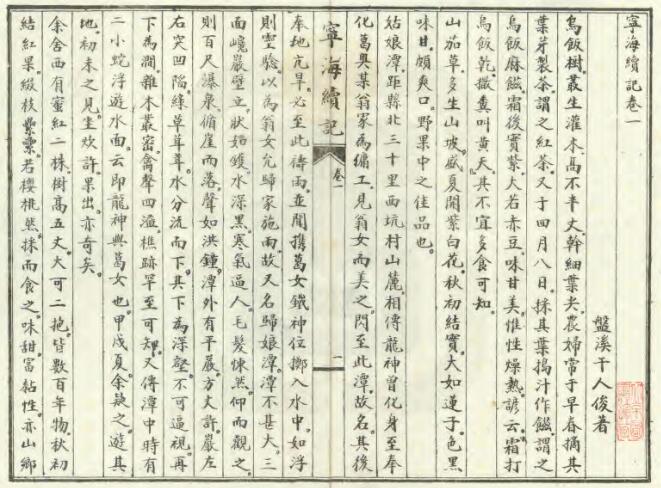 寧海續記卷一
盤溪干人俊著
烏飯樹。叢生灌木。高不半丈。幹細葉尖。農婦常于早春摘其
葉芽製茶。謂之紅茶。又于四月八日。採其葉搗汁作餻。謂之
烏飯麻餻。霜後實紫。大若赤豆。味甘美。惟性燥熱。諺云。霜打
烏飯乾。撮糞叫黃天。其不宜多食可知。
山茄草。多生山坡。盛夏開紫白花。秋初結實。大如蓮子。色黑
味甘。頗爽口。野果中之佳品也。
姑娘潭。距縣北三十里西坑村山麓。相傳龍神曾化身至奉
化葛奧某翁家為傭工。見翁女而美之。閃至此潭。故名。其後
寧海續記
卷一
一
奉地亢旱。必至此禱雨。並聞携葛女鐵神位擲入水中。如浮
則空驗。以為翁女允歸家施雨。故又名歸娘潭。潭不甚大。三
面巉巖壁立。狀如鑊。水深黑。寒氣逼人。毛髮悚然。仰而觀之。
則百尺瀑泉。循崖而落。聲如洪鐘。潭外有平巖。方丈許。巖左
右突凹陷。綠草茸茸。水分流而下。其下為深壑。不可逼視。再
下為澗。雜木叢密。禽聲四溢。樵跡罕至可知。又傳潭中時有
二小蛇浮遊水面。云即龍神與葛女也。甲戌夏。余之遊其
地。初未之見。坐炊許果出。亦奇矣。
余舍西有蜜紅二株。樹高五丈。大可二抱。皆數百年物。秋初
結紅果。綴枝纍纍。若櫻桃然。採而食之。味甜富黏性。亦山鄉